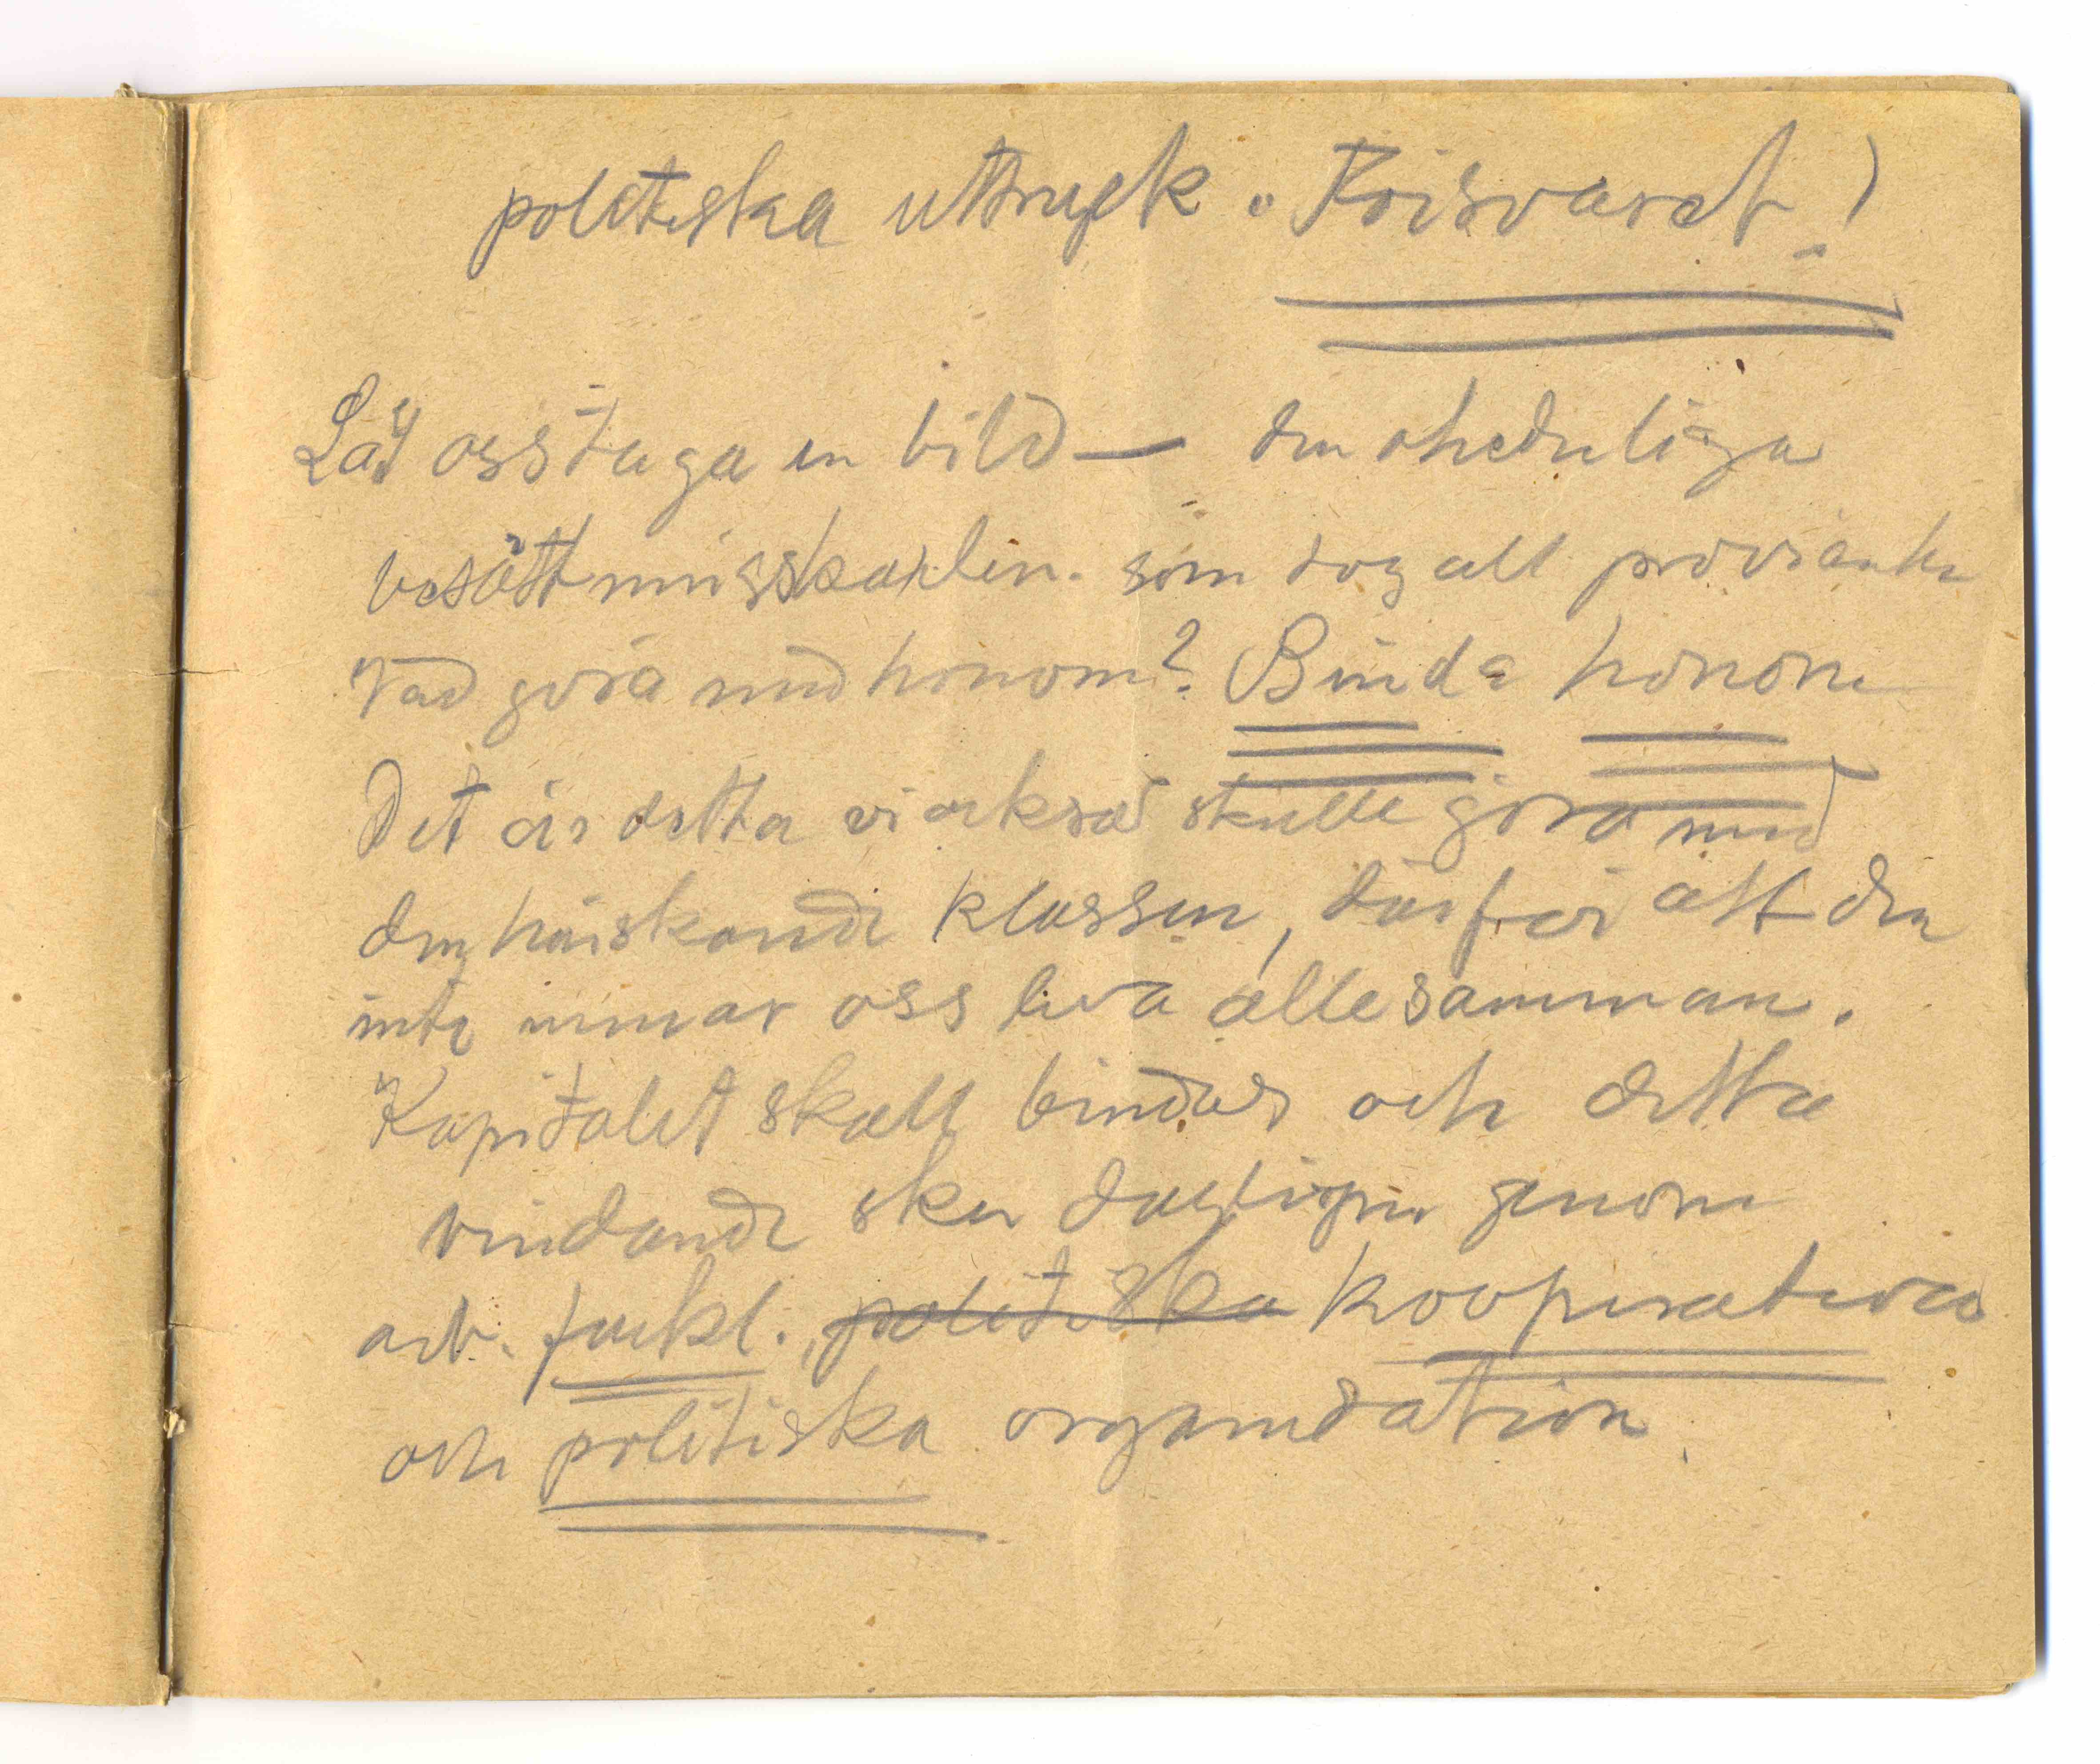 politiska uttryck "Försvaret!
Låt oss taga en bild — den ohederliga
besättningskarlen. som tog all provianten
Vad göra med honom? Binda honom
Det är detta vi också skulle göra med
den härskande klassen, därför att den
inte unnar oss leva allesamman.
Kapitalet skall bindas och detta
bindande sker dagligen genom
arb. fackl., politiska kooperativa
och politiska organisation.